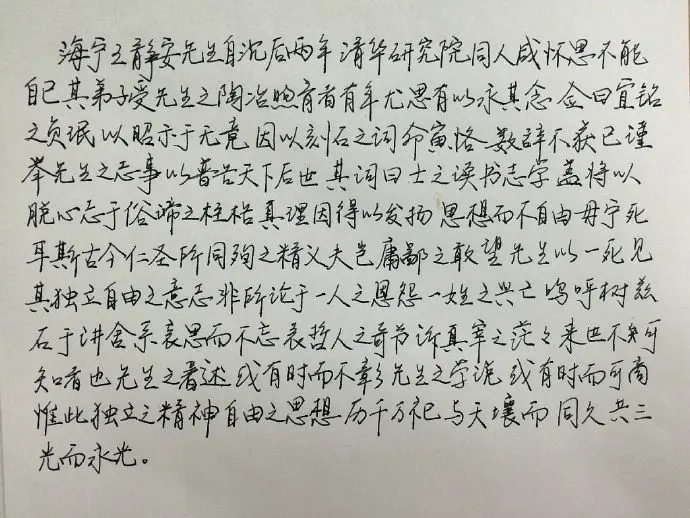 海宁王静安先生自沉后两年 清华研究院同人咸怀思不能
自已 其弟子受先生之陶冶煦育者有年 尤思有以永其念 佥曰宜铭
之贞珉 以昭示于无竟 因以刻石之词命寅恪 数辞不获已 谨
举先生之志事 以普告天下后世 其词曰 士之读书志学 盖将以
脱心志于俗谛之桎梏 真理因得以发扬 思想而不自由 毋宁死
耳 斯古今仁圣所同殉之精义 夫岂庸鄙之敢望 先生以一死见
其独立自由之意志 非所论于一人之恩怨 一姓之兴亡 呜呼 树兹
石于讲舍 系哀思而不忘 表哲人之奇节 诉真宰之茫々 来世不可
知者也 先生之著述 或有时而不彰 先生之学说 或有时而可商
惟此独立之精神 自由之思想 历千万祀 与天壤而同久 共三
光而永光。